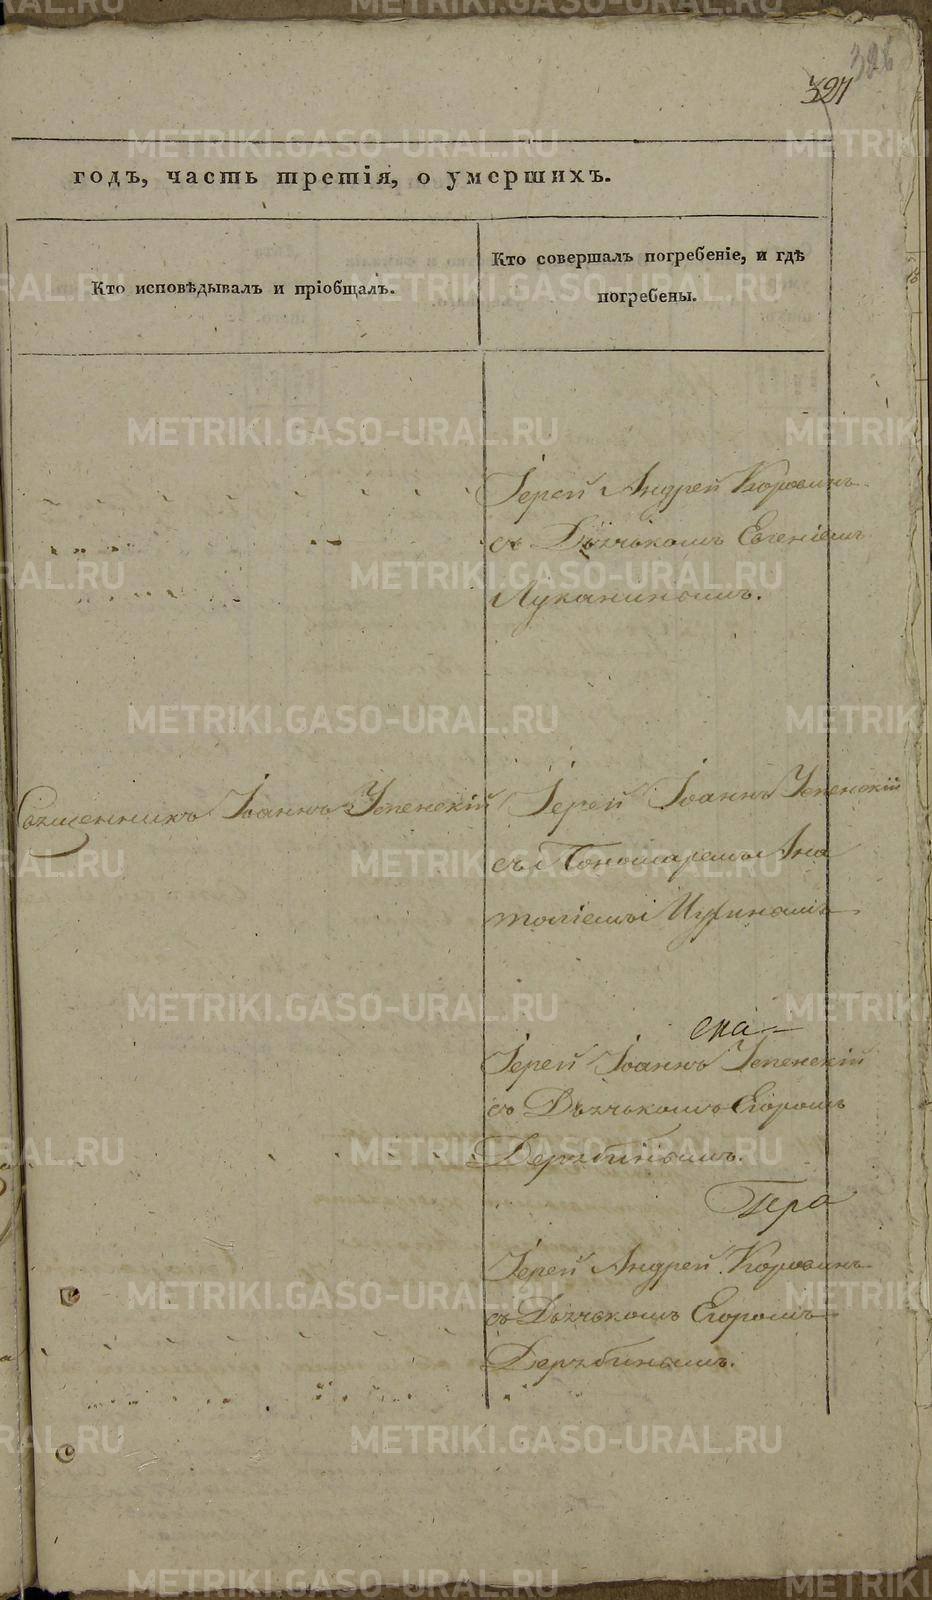 326
327
годъ, часть третія, о умершихъ.
Кто исповѣдывалъ и пріобщалъ.
Кто совершалъ погребеніе, и гдѣ
погребены.
Іерей Андрей Коровинъ
съ Дьячькомъ Евгеніемъ
Луканинымъ.
Священникъ Іоаннъ Успенскій
Іерей Іоаннъ Успенскій
съ Пономаремъ Ана
толіемъ
ска
Іерей Іоаннъ Успенскій
съ Дьячькомъ Егоромъ
Дерябинымъ.
Іерей Андрей Коровинъ
съ Дьячькомъ Егоромъ
Дерябинымъ.
METRIKI.GASO-URAL.RU